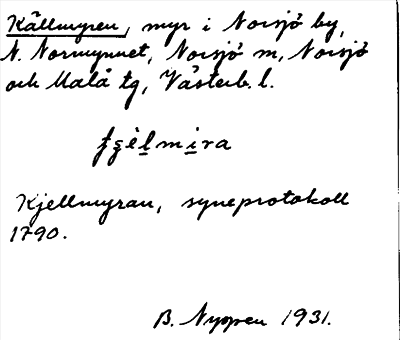 Källmyren, myr i Norsjö by,
N. Normynnet, Norsjö m, Norsjö
och Malå tg, Västerb. l.
Kjellmyran, syneprotokoll
1790.
B. Nyspen 1931.